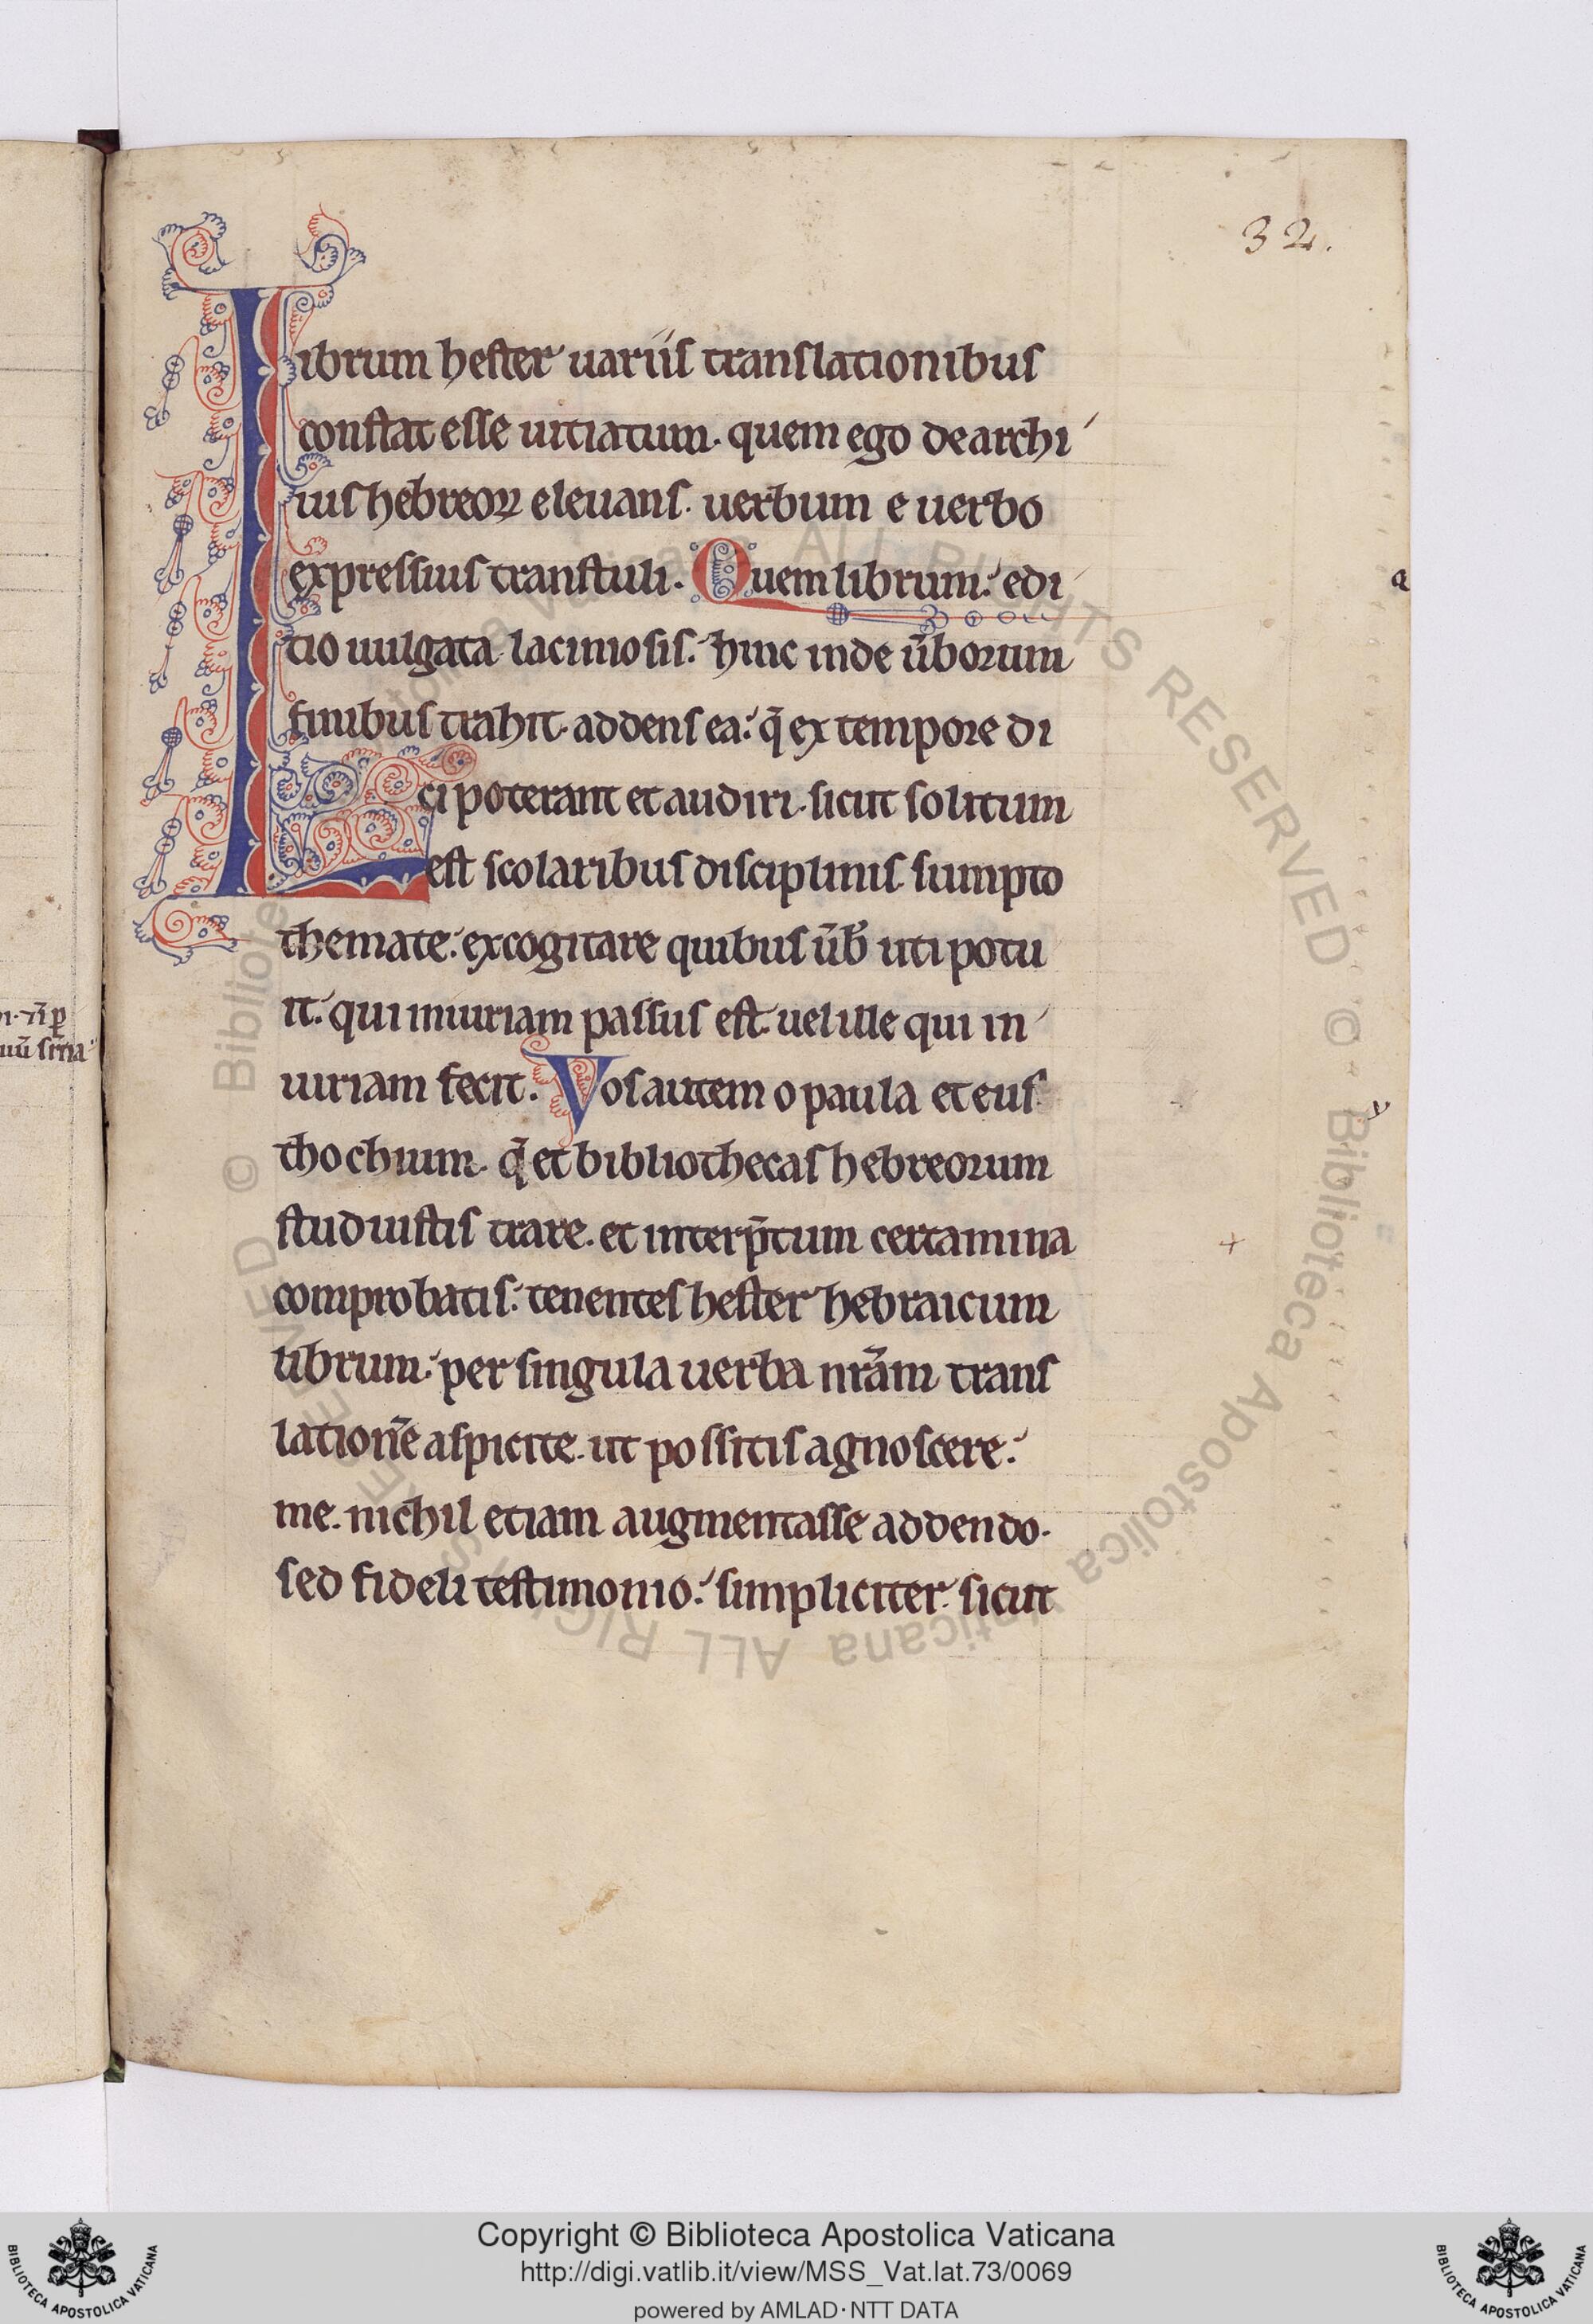 32.
Librum hester uariis translationibus
constat esse uitiatum. quem ego de archi
uis hebreoꝝ eleuans. uerbum e uerbo
expressius transtuli. Quem librum: edi
a
tio uulgata laciniosis: hinc inde ūborum
finibus trahit. addens ea: q̄ ex tempore di
ci poterant et audiri. sicut solitum
est scolaribus disciplinis sumpto
themate: excogitare quibus ūb uti potu
it: qui iniuriam passus est. uel ille qui in
iuriam fecit. Vos autem o paula et eus
thochium. q̄ et bibliothecas hebreorum
studuistis trare. et interp̄tum certamina
comprobatis: tenentes hester hebraicum
librum: per singula uerba nrām trans
lationē aspicite. ut possitis agnoscere:
me. nichil etiam augmentasse addendo.
sed fideli testimonio: simpliciter. sicut
Copyright © Biblioteca Apostolica Vaticana
http://digi.vatlib.it/view/MSS_Vat.lat.73/0069
powered by AMLAD·NTT DATA
BIBLIOTECA APOSTOLICA VATICANA
BIBLIOTECA APOSTOLICA VATICANA